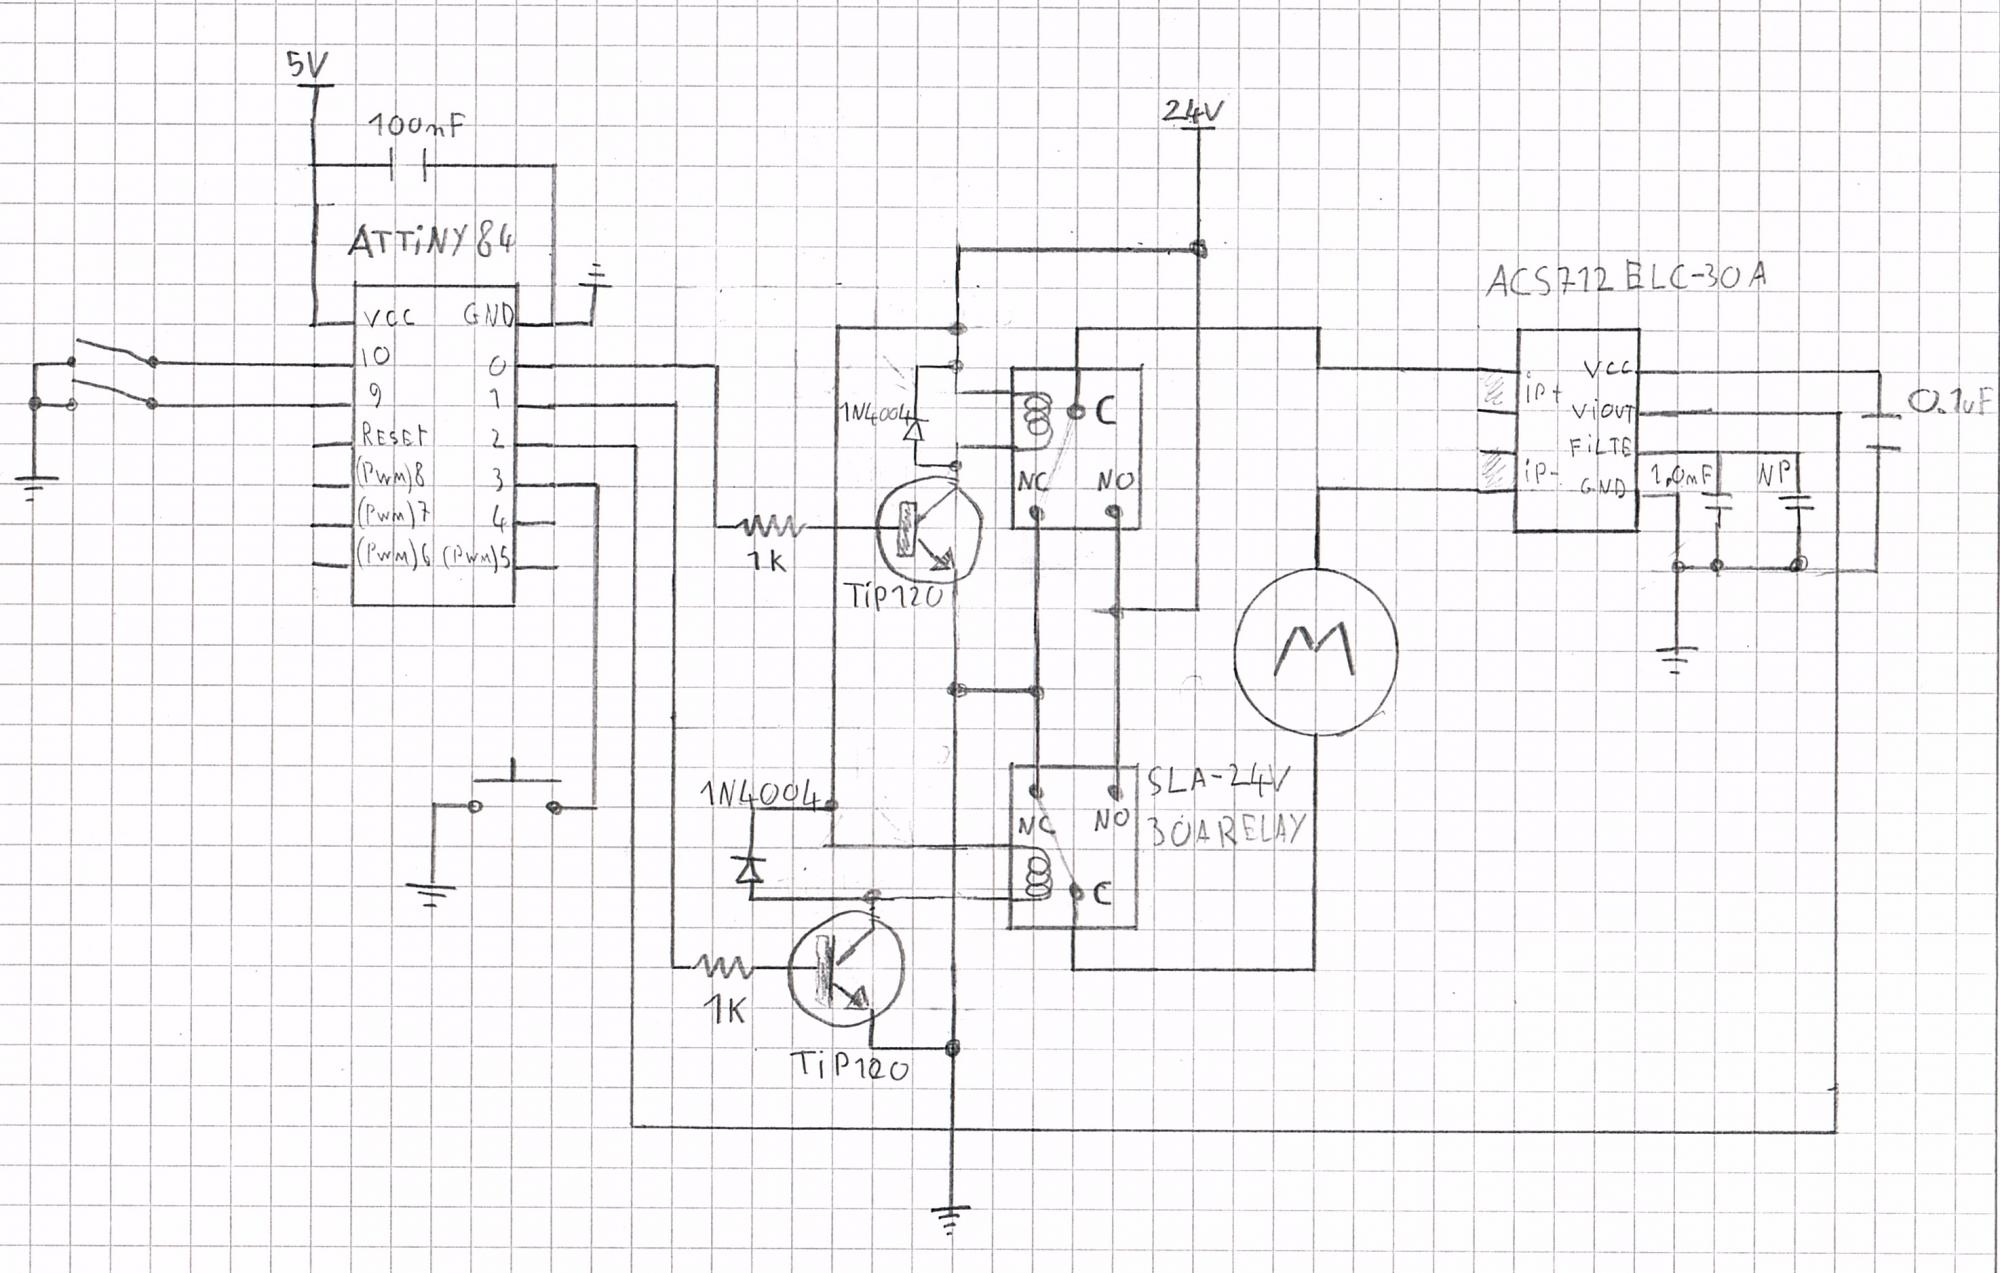 5V
100nF
ATTiNY84
VCC GND
10 0
9 1
RESET 2
(PWM)8 3
(PWM)7 4
(PWM)6 (PWM)5
1K
TiP120
1N4004
24V
C
NC NO
1N4004
1K
TiP120
NC NO
C
SLA-24V
30A RELAY
M
ACS712 ELC-30A
iP+
iP-
VCC
ViOUT
FiLTE
GND
1,0nF
NP
0.1uF